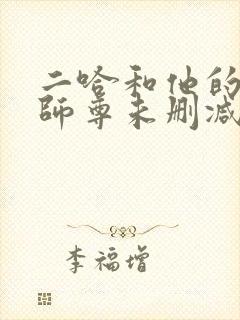 二哈和他的
師尊未删减
李福增